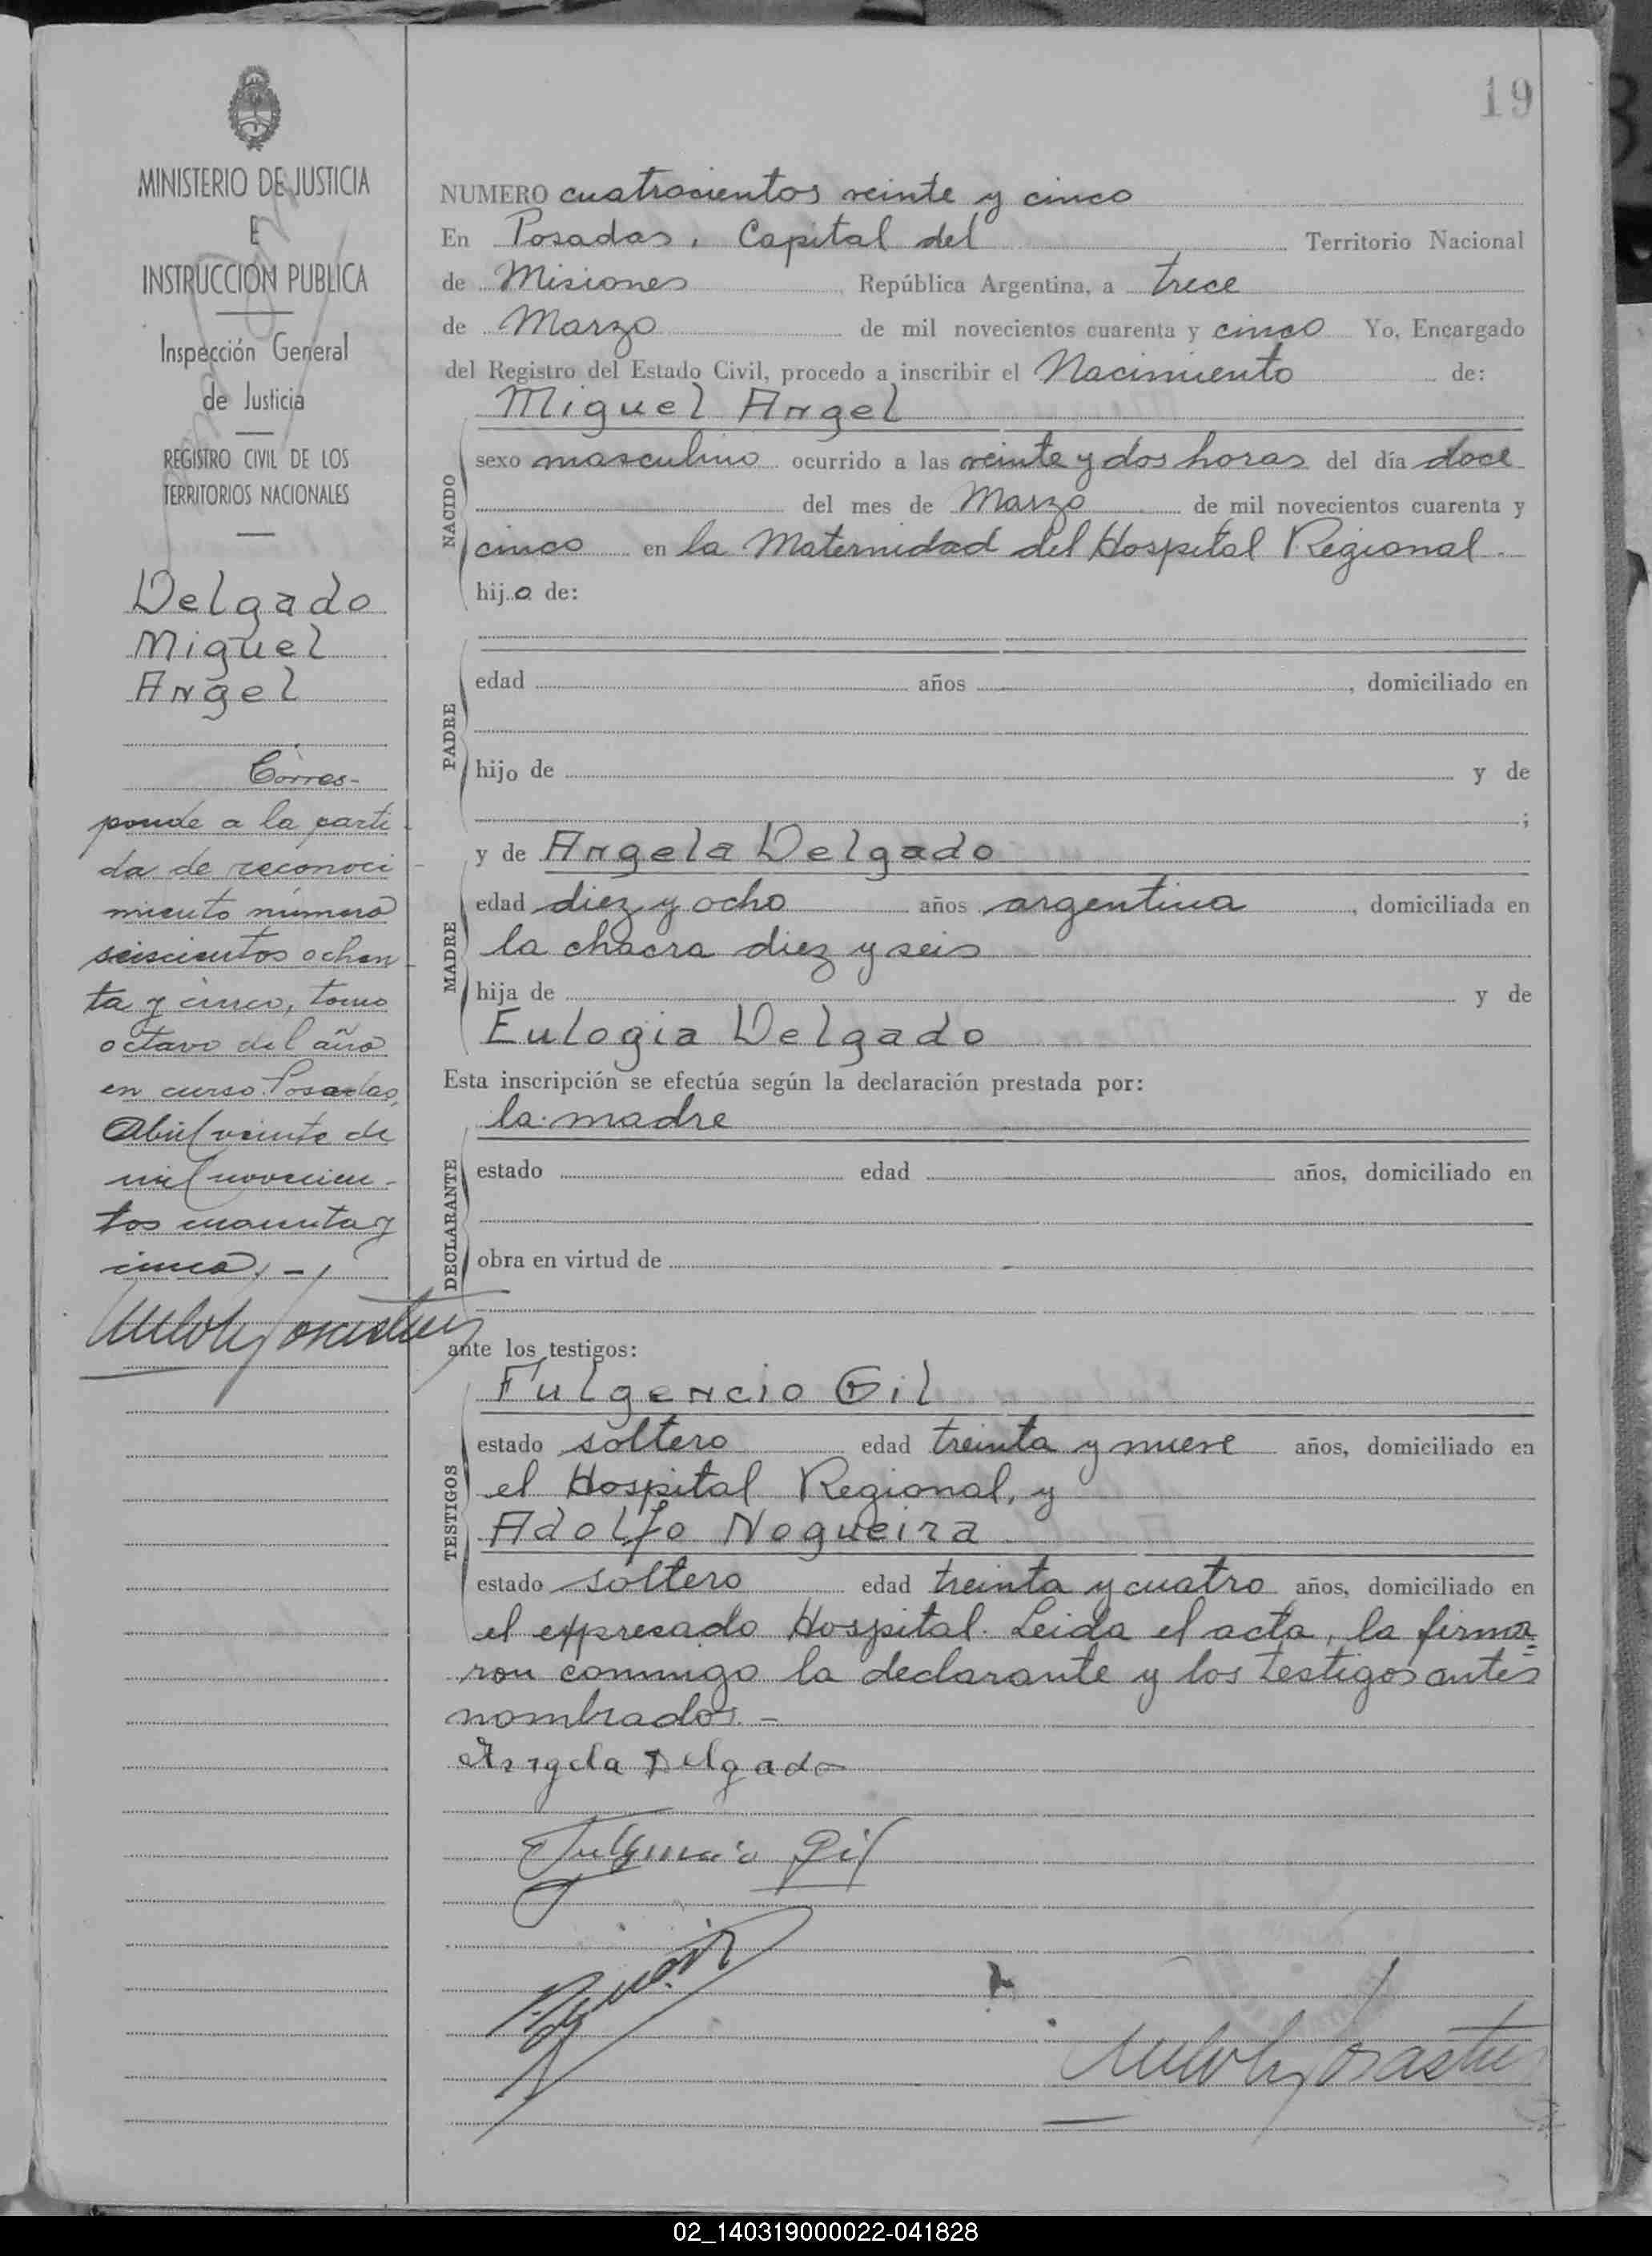 19
MINISTERIO DE JUSTICIA
E
INSTRUCCION PUBLICA
Inspección General
de Justicia
REGISTRO CIVIL DE LOS
TERRITORIOS NACIONALES
Delgado
Miguel
Angel
Corres-
ponde a la parti
da de reconoci-
miento número
seiscientos ochen-
ta y cinco, tomo
octavo del año
en curso. Posadas,
Abril veinte de
mil novecien-
tos cuarenta y
cinco.-
NUMERO cuatrocientos veinte y cinco
En Posadas, Capital del Territorio Nacional
de Misiones República Argentina, a trece
de Marzo de mil novecientos cuarenta y cinco Yo, Encargado
del Registro del Estado Civil, procedo a inscribir el Nacimiento de:
Miguel Angel
NACIDO
sexo masculino ocurrido a las veinte y dos horas del día doce
del mes de Marzo de mil novecientos cuarenta y
cinco en la Maternidad del Hospital Regional.
hijo de:
PADRE
edad años , domiciliado en
hijo de y de
;
MADRE
y de Angela Delgado
edad diez y ocho años argentina , domiciliada en
la chacra diez y seis
hija de y de
Eulogia Delgado
Esta inscripción se efectúa según la declaración prestada por:
la madre
DECLARANTE
estado edad años, domiciliado en
obra en virtud de
ante los testigos:
TESTIGOS
Fulgencio Gil
estado soltero edad treinta y nueve años, domiciliado en
el Hospital Regional, y
Adolfo Nogueira
estado soltero edad treinta y cuatro años, domiciliado en
el expresado Hospital. Leida el acta, la firma=
ron conmigo la declarante y los testigos antes
nombrados.-
Angela Delgado
Fulgencio Gil
02_140319000022-041828